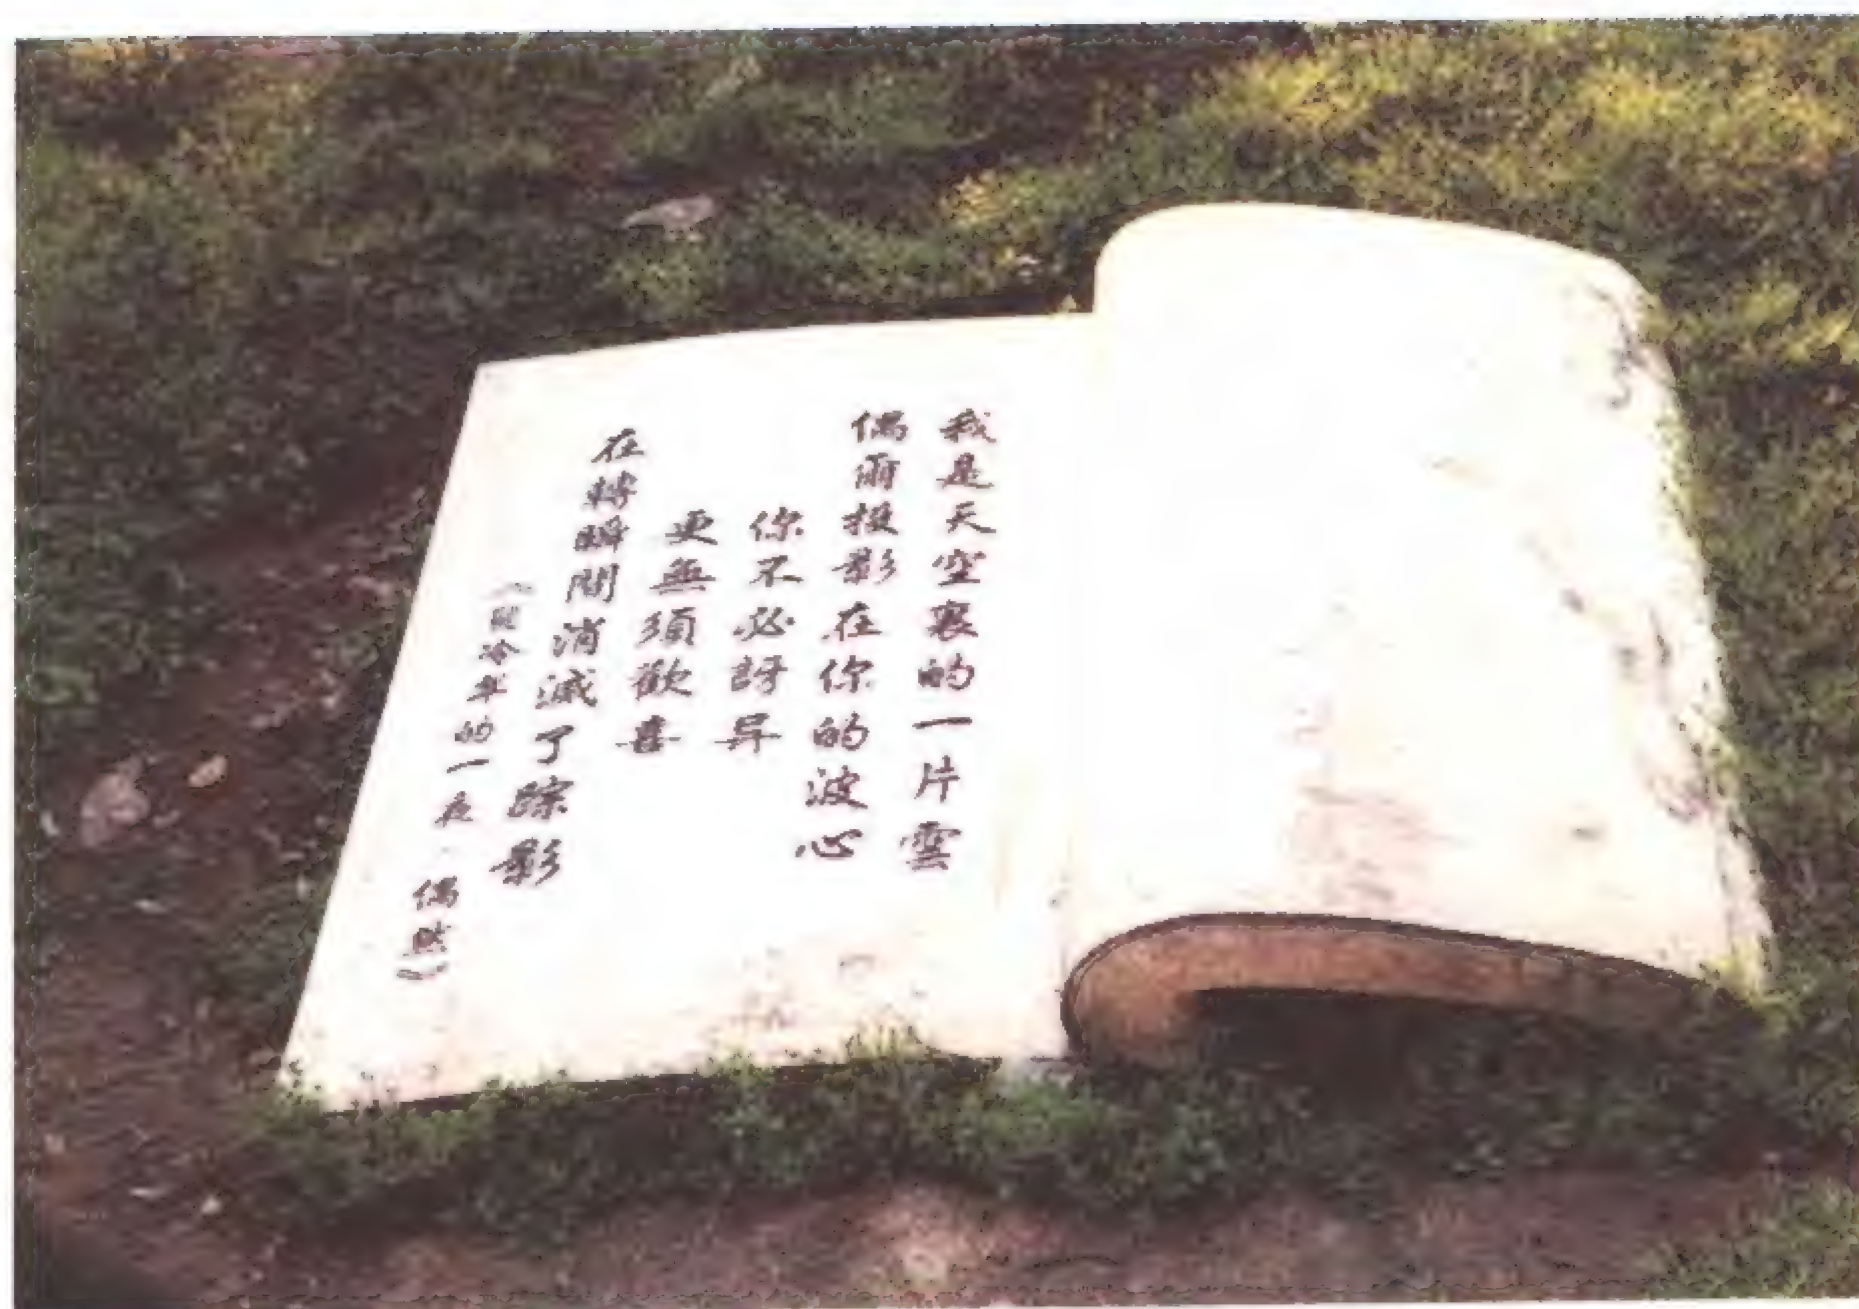 我是天空裏的一片雲
偶爾投影在你的波心
你不必訝异
更無須歡喜
在轉瞬間消滅了踪影
(翡冷翠的一夜·偶然)